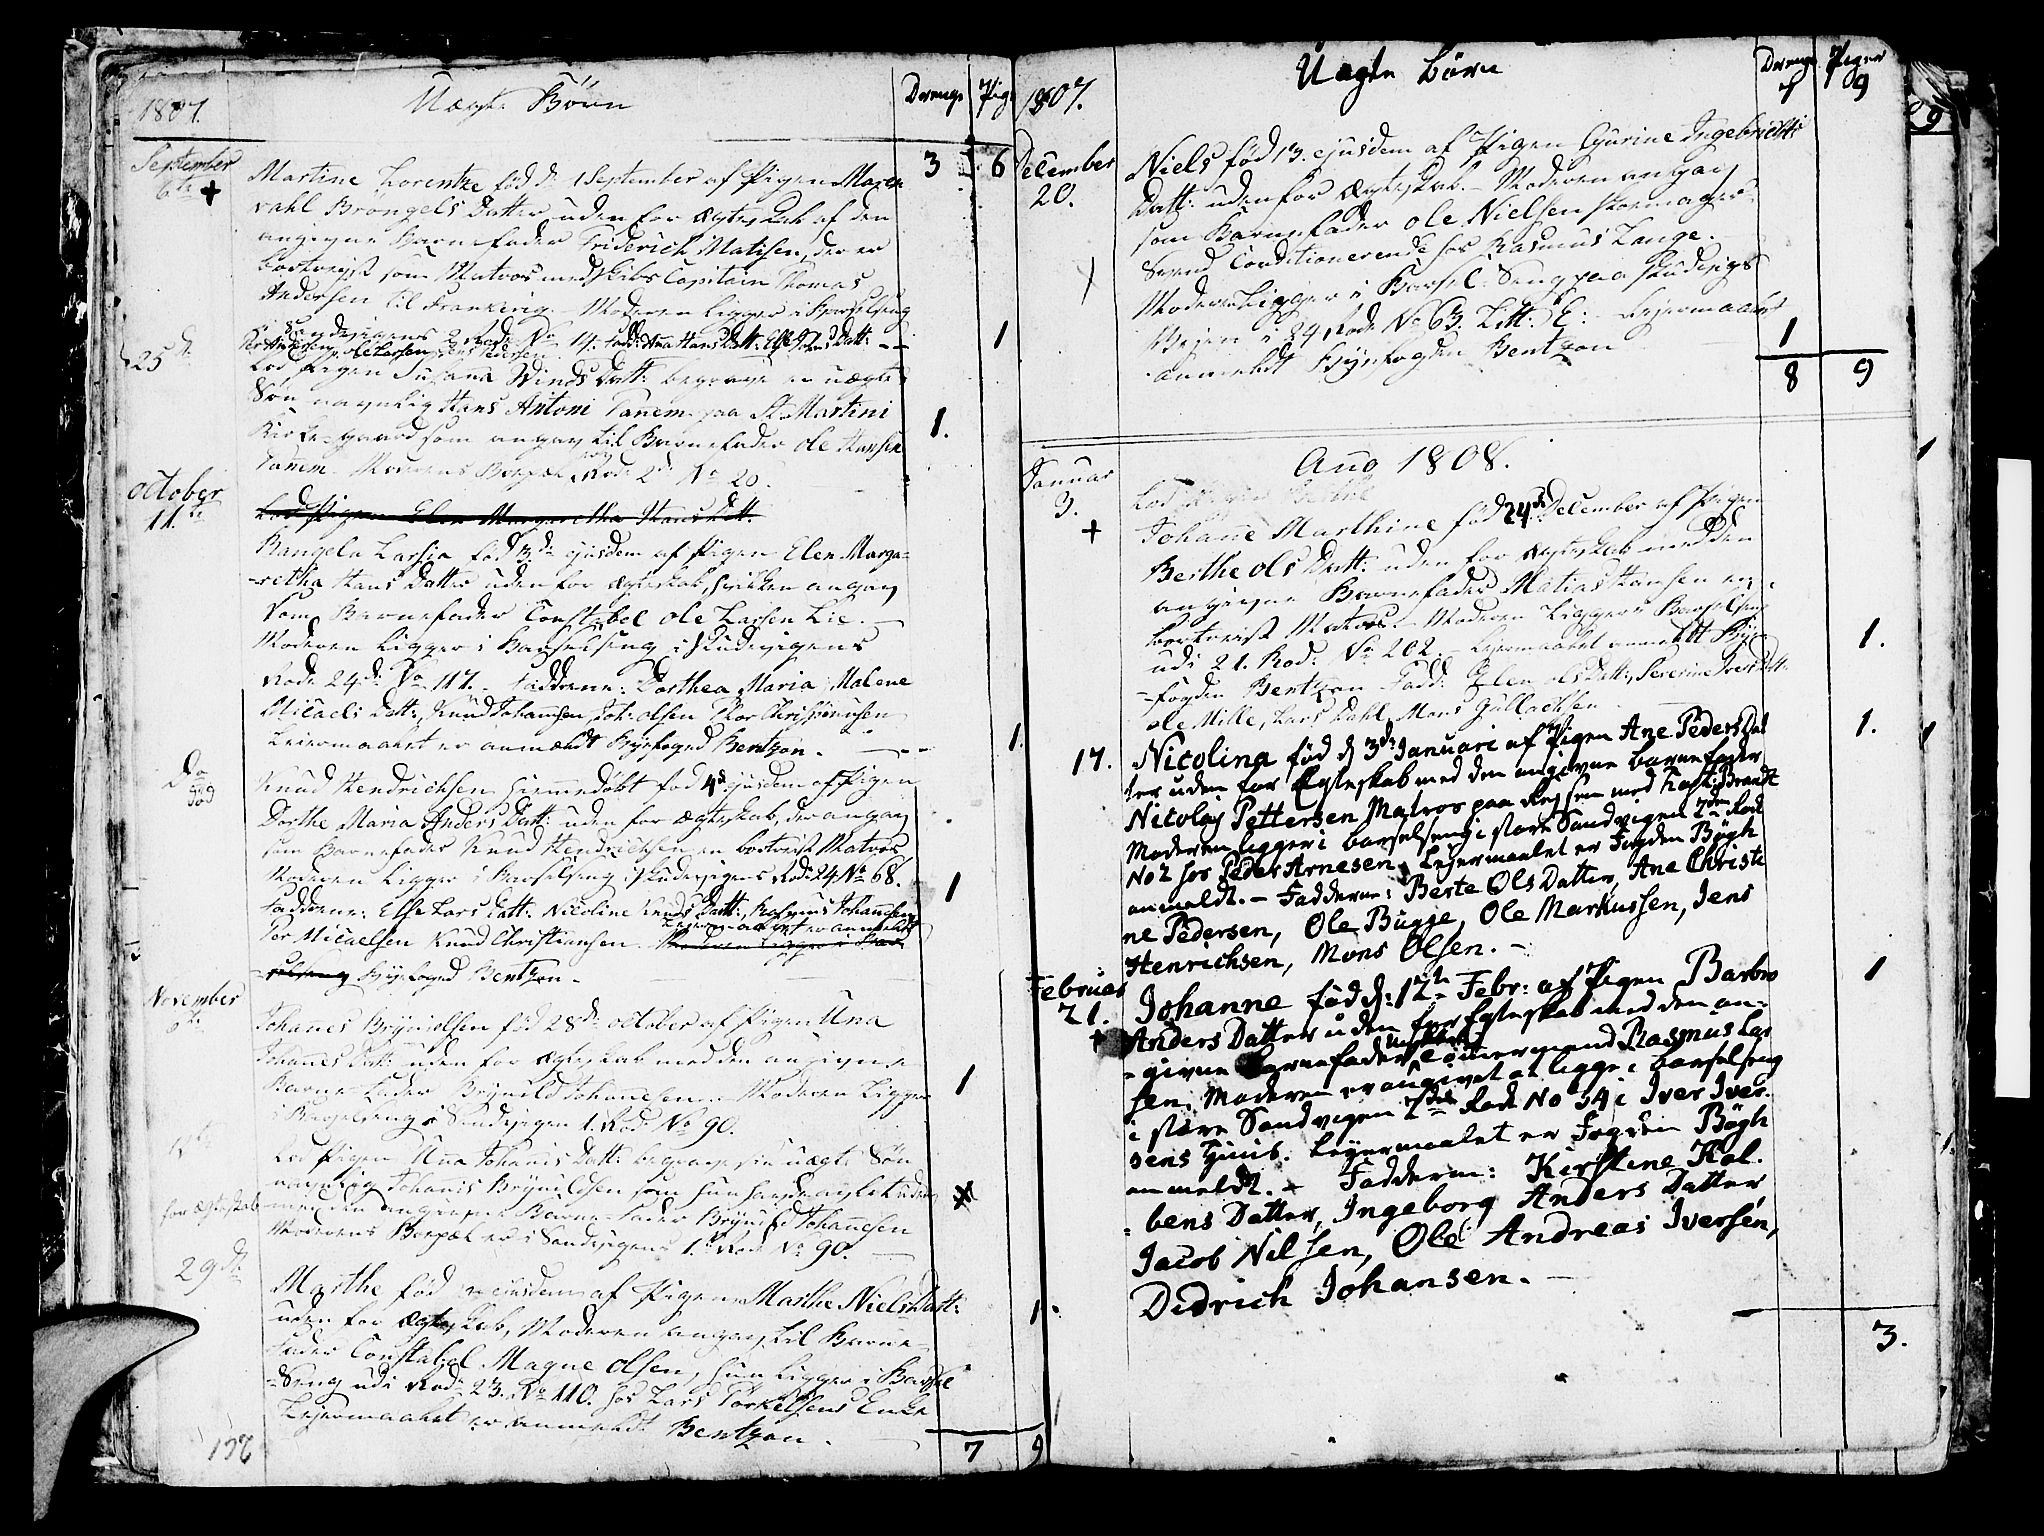 1807.
Uægte Börn
Drenge Pige
September
6te +
3 6
Martine Lorentze föd d: 1 September af Pigen Maren
Bröngels Datter uden for Ægteskab af den
angivne Barnefader Friderich Matisen, der er
bortreyst som Matros med Skibs Capitain Thomas
Andersen til Frankrig. Moderen ligger i Barselseng
i Sandvigens 2 Rode No 14. Fadd: Anna Hans Datt: Else Johns Datt:
1
25de
Lod Pigen Susana Winds Datt: begrave en uægte
Sön navnlig Hans Antoni Tanem paa St. Martini
Kirke-gaard som angav til Barnefader Ole Hansen
Tanem Moderens Bopæl Rode 2de No 20.
1.
October
11te
Lod Pigen Elen Margaretha Hans Datt:
Rangela Larsia föd 3de ejusdem af Pigen Elen Marga-
-retha Hans Datter uden for Ægteskab, hvilken angav
som Barnefader Constabel Ole Larsen Lie.
Moderen Ligger i Barselseng i Skudevigens
Rode 24de No 117. Fadderne: Dorthea Maria, Malene
Micaels Datt:, Knud Johannsen, Joh: Olsen
Leiermaalet er anmeldt Byefoged Bentzon.
1.
Do
död
Knud Hendrichsen hiemmedöbt föd 4de ejusdem af Pigen
Dorthe Maria Anders Datt: uden for Ægteskab, der angav
som Barnefader Knud Hendrichsen en bortreist Matros
Moderen Ligger i Barselseng i Skudevigens Rode 24 No 68.
Fadderne: Else Lars Datt: Nicoline Knuds Datt:, Rasmus Johannsen
Per Micaelsen Knud Christiansen. Leiermaalet er anmeldt
Byefoged Bentzon.
1
November
Johanes Brynildsen föd 28de October af Pigen Una
Johanes Datt: uden for Ægteskab med den angivne
Barne-Fader Brynild Johanesen. Moderen Ligger
i Barselseng i Sandvigen 1. Rode No 90.
1
Lod Pigen Una Johanis Datt: begrave sin uægte Sön
navnlig Johanis Brynildsen som hun havde avlet uden
for Ægteskab med den angivne Barne-Fader Brynild Johannesen
Moderens Bopæl er i Sandvigens 1. Rode No 90.
29de
Marthe föd ejusdem af Pigen Marthe Niels Datt:
uden for Ægteskab, Moderen angav til Barne-
Fader Constabel Magne Olsen, hun Ligger i Barsel
-Seng udi Rode 23. No 110. hos Lars Torkelsens Enke
Leiermaalet er anmeldt Bentzon.
1.
7 9
1807.
Uægte Börn
Drenge Piger
7 9
December
20.
Niels föd 13. ejusdem af Pigen Gurine Ingebrichts
Datt: uden for Ægteskab. Moderen angav
som Barnefader Ole Nielsen Skomager
Svend Conditionerende hos Rasmus Lange.
Moderen Ligger i Barsel-Seng paa Skudevigs
Veyen i 24 Rode No 63. Litt: E: Leyermaalet
anmeldt Byefogden Bentzon
1
8 9
Año 1808.
Januar
3.
+
Johane Marthine föd 24de December af Pigen
Berthe Ols Datt: uden for Ægteskab med den
angivne Barnefader Matias Hansen en
bortreist Matros. Moderen Ligger i Barselseng
udi 21. Rode No 202. Leyermaalet anmeldt Bye-
-fogden Bentzon Fadd: Elen Ols Datt:, Severine Ivers Datt:
Ole Mille, Lars Dahl, Mons Gullachsen
1.
17.
Nicolina föd d 3de Januari af Pigen Ane Peders Dat
ter uden for Egteskab med den angivne barnefader
Nicolaj Pettersen Matros paa Rejsen med Brandt
Moderen ligger i barselseng i store Sandvigen 7den Rode
No 2 hos Peder Arnesen, Lejermaalet er Fogden Bögh
anmeldt. - Fadderne: Berte Ols Datter, Ane Christi
ne Pedersen, Ole Bugge, Ole Markussen, Jens
Henrichsen, Mons Olsen. -
1.
Februar
21.
+
Johanne föd d: 12te Febr: af Pigen Barbro
Anders Datter uden for Egteskab med den an-
-givne barnefader Rasmus Lar
sen. Moderen er angivet at ligge i barselseng
i store Sandvigen 7de Rode No 54 i Iver Iver-
sens Huus. Leyermaalet er Fogden Bögh
anmeldt. - Fadderne: Kirstine Kol-
bens Datter, Ingeborg Anders Datter
Jacob Nilsen, Ole Andreas Iversen,
Didrich Johansen. -
1
3.